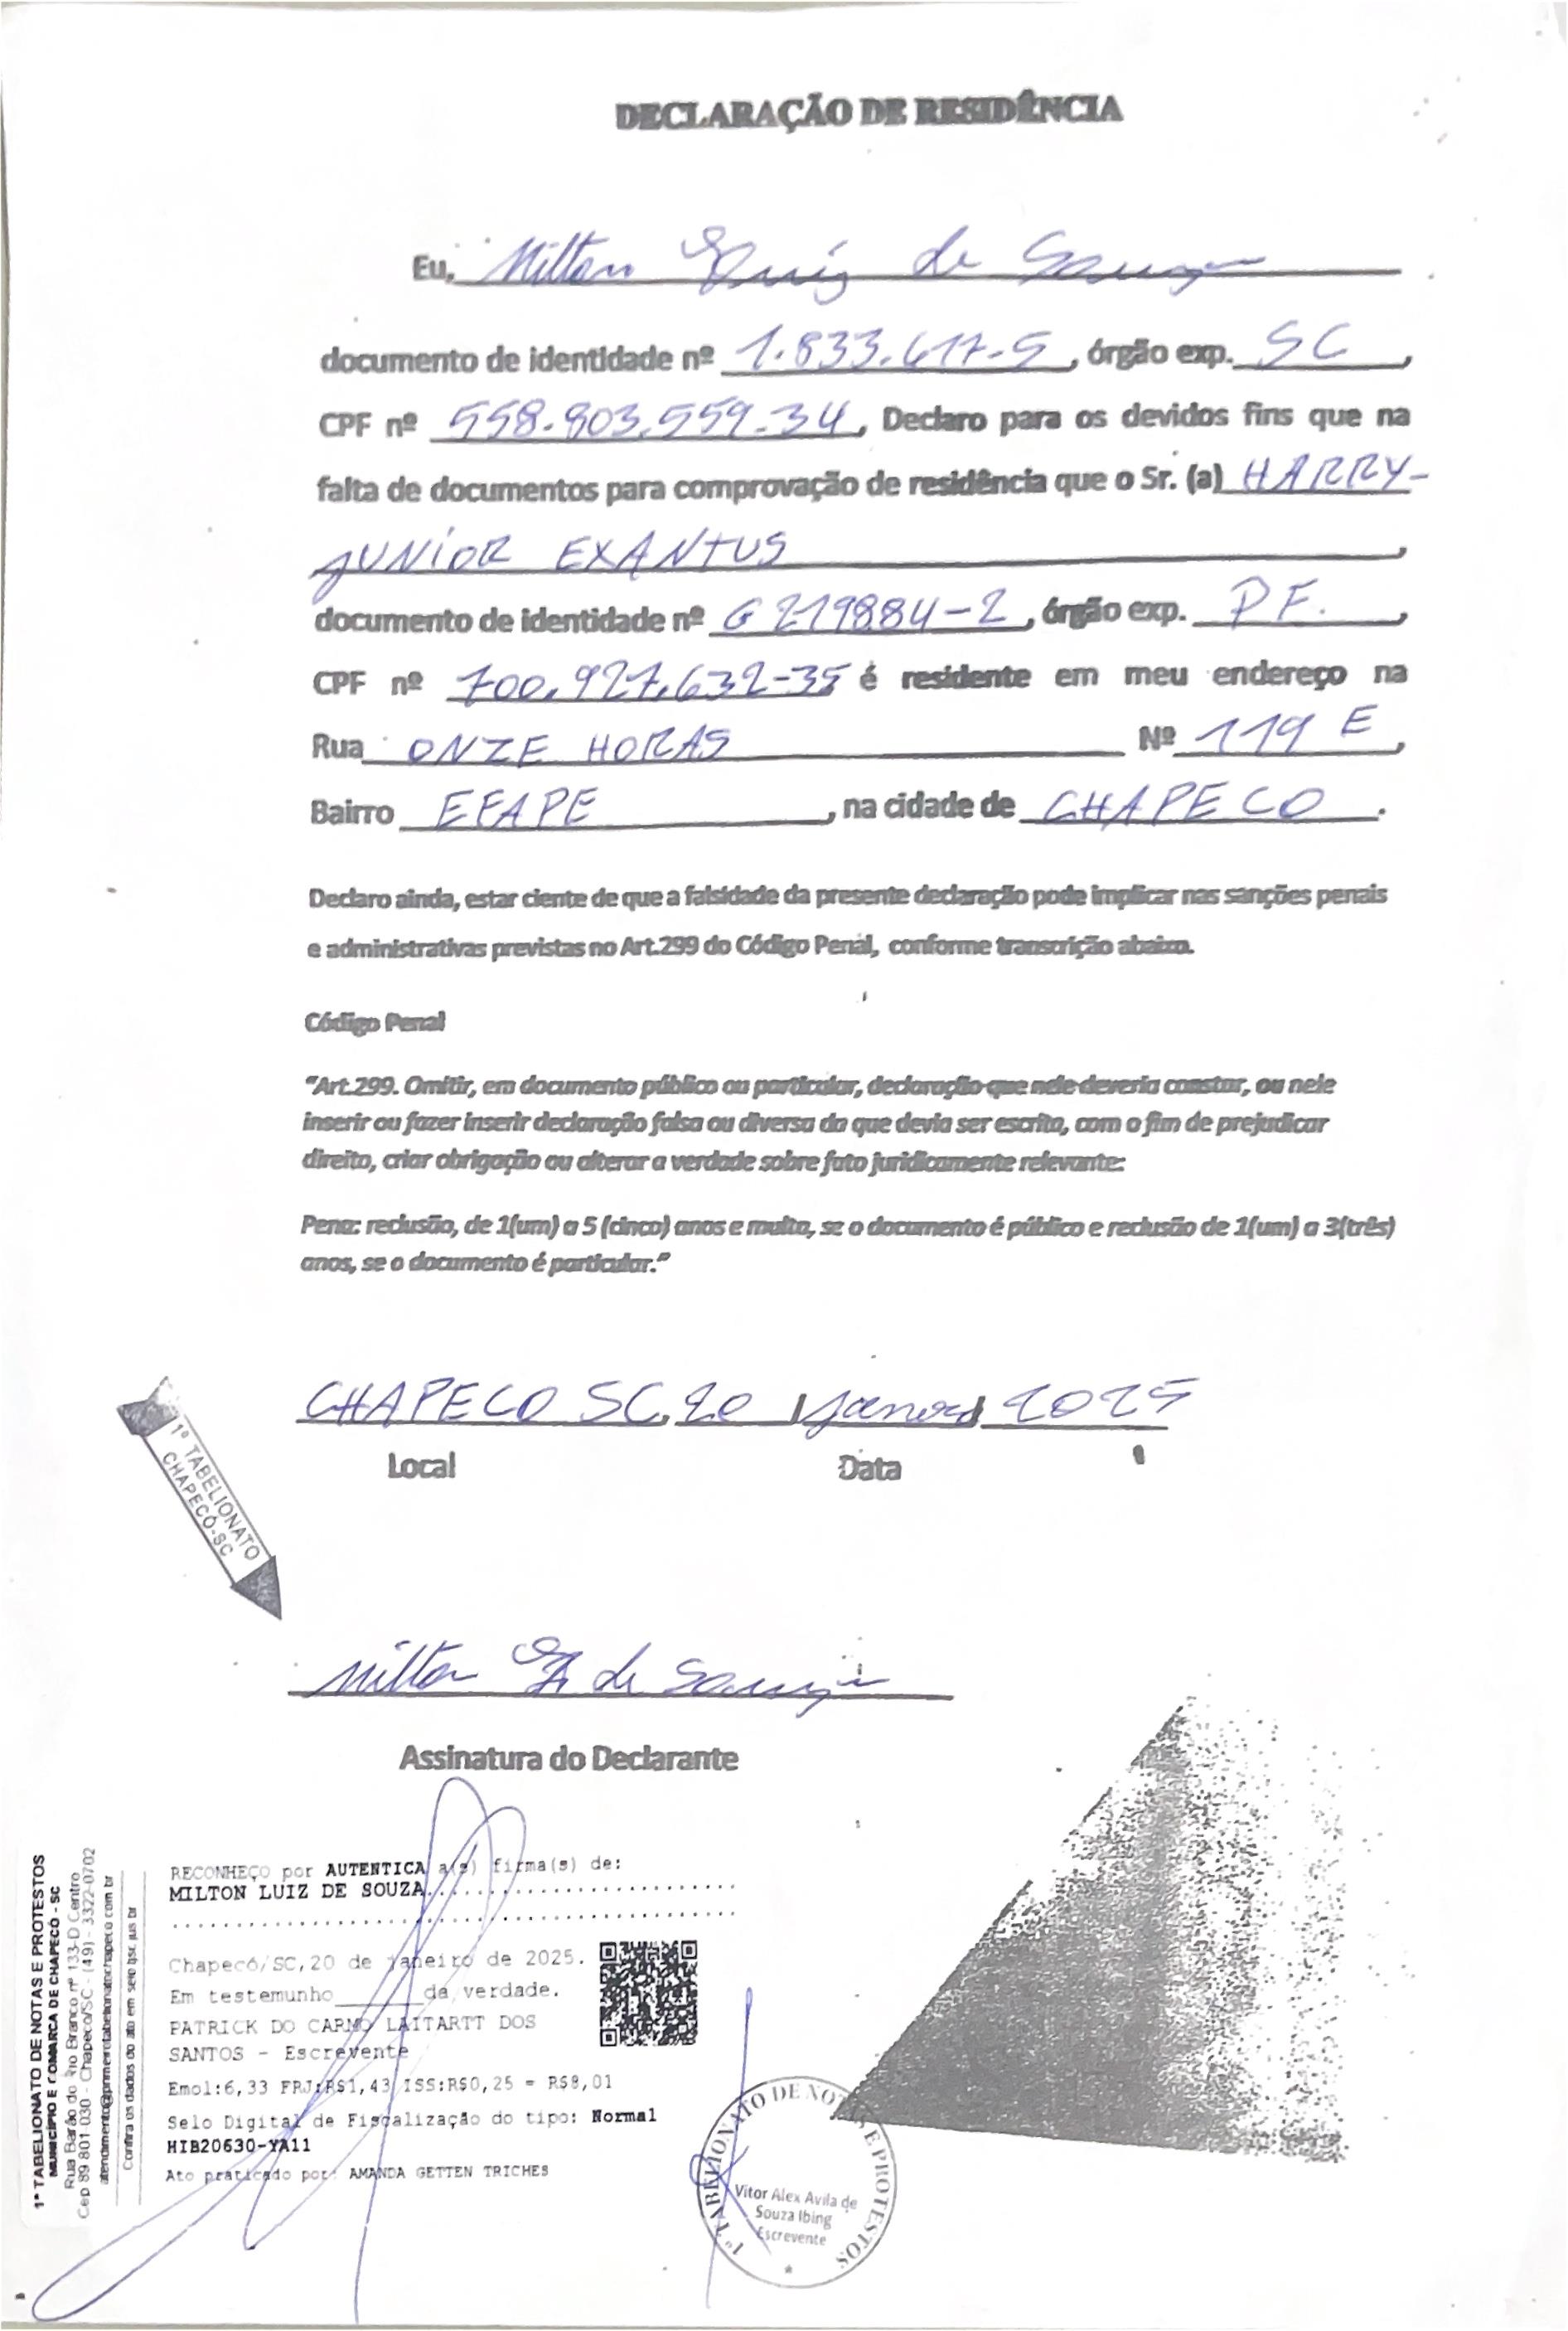 DECLARAÇÃO DE RESIDÊNCIA
Eu, Milton Luiz de Souza
documento de identidade nº 1.833.617-5, órgão exp. SC,
CPF nº 558.803.559-34, Declaro para os devidos fins que na
falta de documentos para comprovação de residência que o Sr. (a) HARRY-
JUNIOR EXANTUS,
documento de identidade nº G219884-2, órgão exp. P F.,
CPF nº 700.927.632-35 é residente em meu endereço na
Rua ONZE HORAS Nº 119 E,
Bairro EFAPE, na cidade de CHAPECO.
Declaro ainda, estar ciente de que a falsidade da presente declaração pode implicar nas sanções penais
e administrativas previstas no Art.299 do Código Penal, conforme transcrição abaixo.
Código Penal
"Art.299. Omitir, em documento público ou particular, declaração que nele deveria constar, ou nele
inserir ou fazer inserir declaração falsa ou diversa da que devia ser escrita, com o fim de prejudicar
direito, criar obrigação ou alterar a verdade sobre fato juridicamente relevante:
Pena: reclusão, de 1(um) a 5 (cinco) anos e multa, se o documento é público e reclusão de 1(um) a 3(três)
anos, se o documento é particular."
CHAPECO SC, 20 / / 2025
Local Data
1º TABELIONATO
CHAPECÓ-SC
Milton de Souza
Assinatura do Declarante
1º TABELIONATO DE NOTAS E PROTESTOS
MUNICÍPIO E COMARCA DE CHAPECÓ - SC
Rua Barão do Rio Branco nº 133-D Centro
Cep 89 801-030 - Chapecó/SC - (49) - 3322-0702
Confira os dados do ato em selo tjsc jus br
RECONHEÇO por AUTENTICA a(s) firma(s) de:
MILTON LUIZ DE SOUZA
Chapecó/SC, 20 de janeiro de 2025.
Em testemunho______da verdade.
PATRICK DO CARMO LAITARTT DOS
SANTOS - Escrevente
Emol:6,33 FRJ:R$1,43 ISS:R$0,25 = R$8,01
Selo Digital de Fiscalização do tipo: Normal
HIB20630-YA11
Ato praticado por: AMANDA GETTEN TRICHES
1º TABELIONATO DE NOTAS E PROTESTOS
Vitor Alex Avila de
Souza Ibing
Escrevente